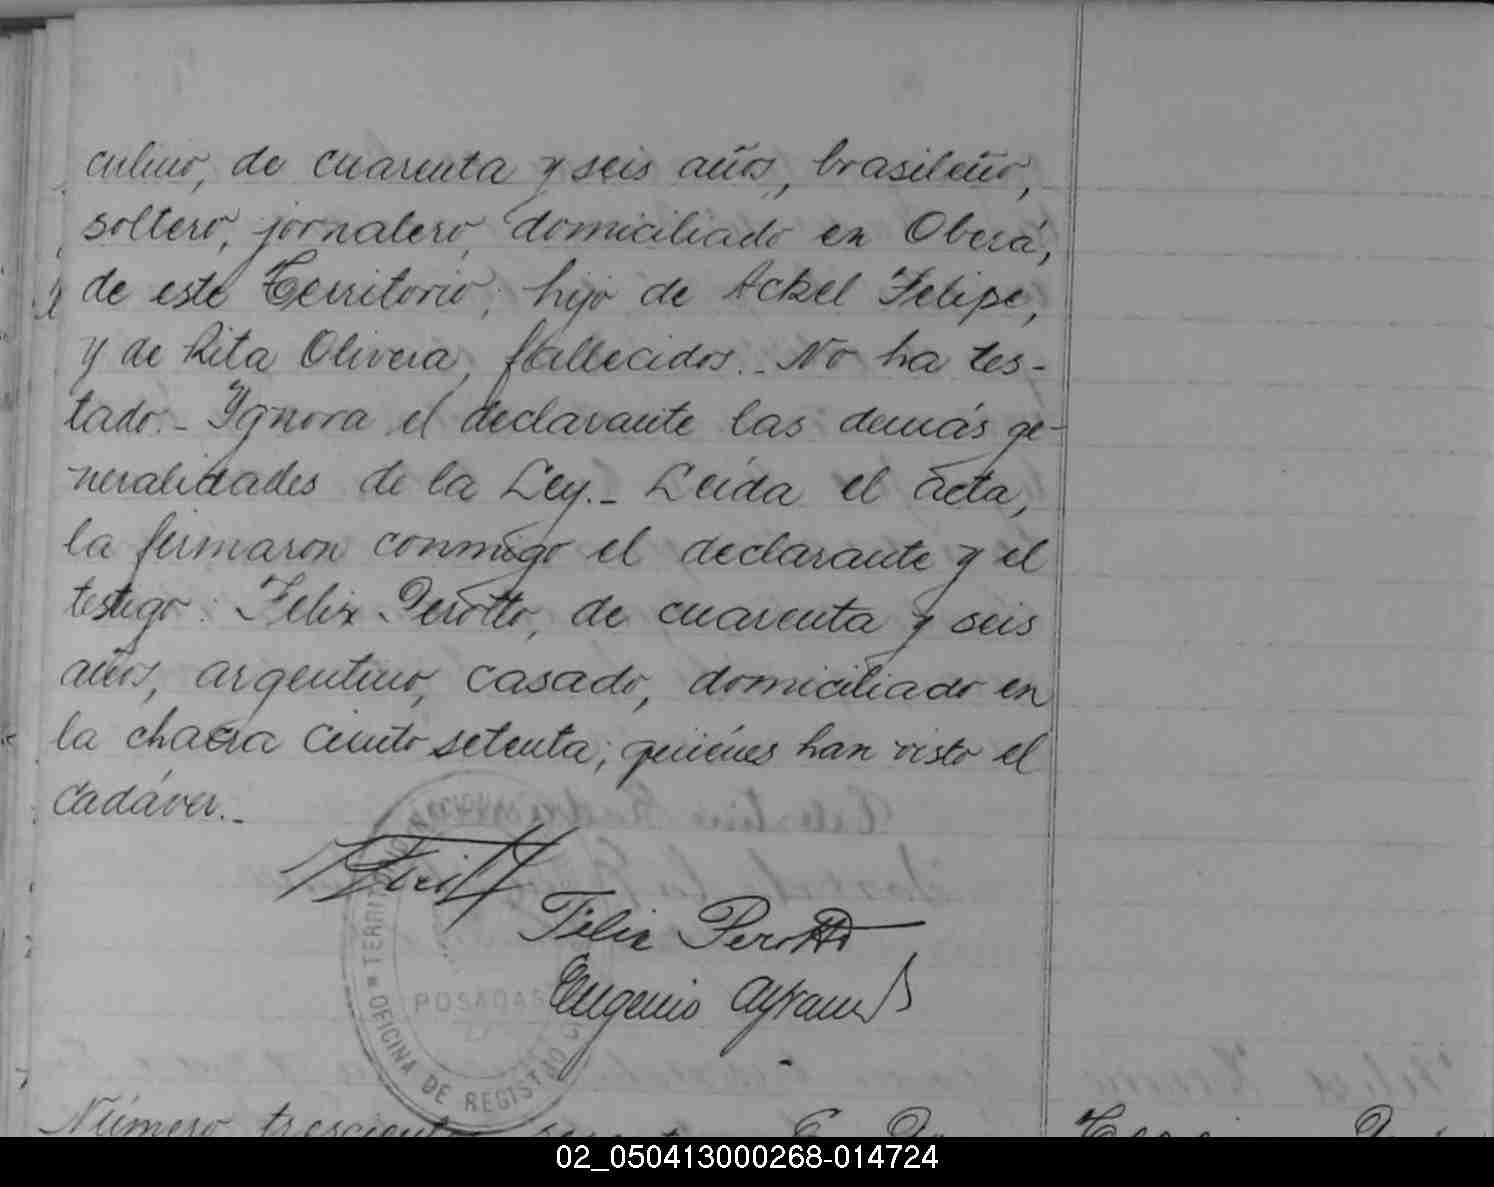 culino, de cuarenta y seis años, brasileño,
soltero, jornalero, domiciliado en Oberá,
de este Territorio; hijo de Ackel Felipe,
y de Rita Olivera, fallecidos.- No ha tes-
tado.- Ignora el declarante las demás ge-
neralidades de la Ley.- Leída el acta,
la firmaron conmigo el declarante y el
testigo: Felix Perotto, de cuarenta y seis
años, argentino, casado, domiciliado en
la chacra ciento setenta; quiénes han visto el
cadáver.-
Felix Perotto
Eugenio
POSADAS
OFICINA DE REGISTRO
Número trescientos
02_050413000268-014724